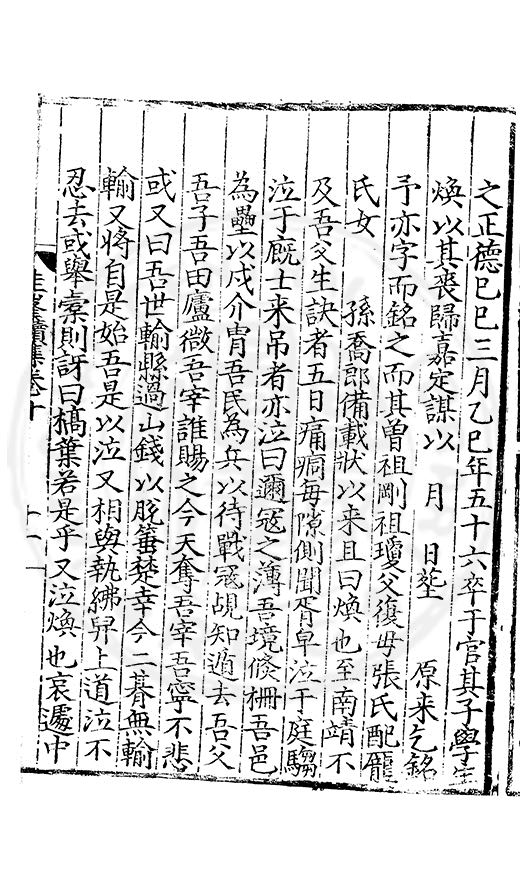 之正德己巳三月乙巳年五十六卒于官其子學生
煥以其喪歸嘉定謀以　月　日塟　　原来乞銘
予亦字而銘之而其曽祖剛祖瓊父復母張氏配龎
氏女　　孫喬郎備載狀以来且曰煥也至南靖不
及吾父生訣者五日痛痼每隙側聞胥皁泣于庭騶
泣于廐士来吊者亦泣曰邇冦之薄吾境倏柵吾邑
為壘以戍介胄吾民為兵以待戰冦覘知遁去吾父
吾子吾田廬微吾宰誰賜之今天奪吾宰吾寧不悲
或又曰吾世輸縣過山錢以脫箠楚幸今二朞無輸
輸又將自是始吾是以泣又相與執紼舁上道泣不
忍去或舉橐則訝曰槁葉若是乎又泣煥也哀遽中
續集卷十
十一